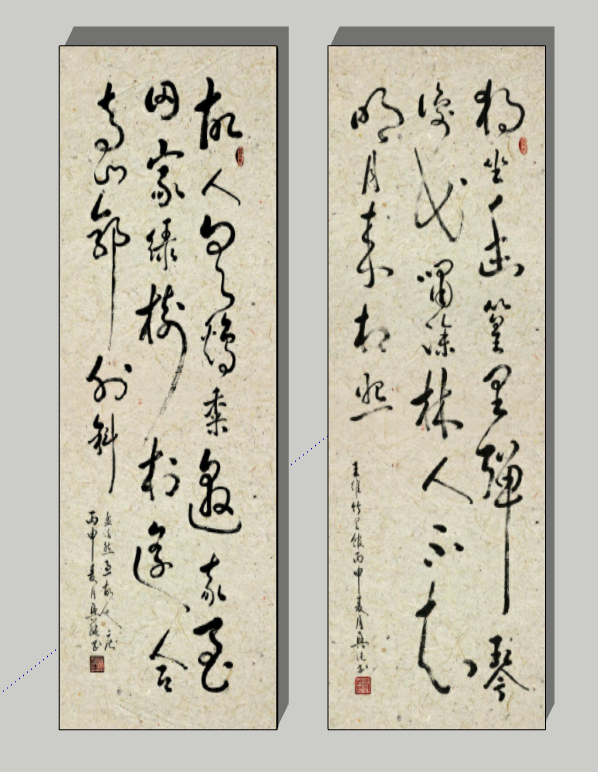 独坐幽篁里彈琴
復長嘯深林人不知
明月来相照
王維竹里館丙申夏月
故人具鷄黍邀我至
田家綠樹村邊合
青山郭外斜
孟浩然過故人莊
丙申夏月